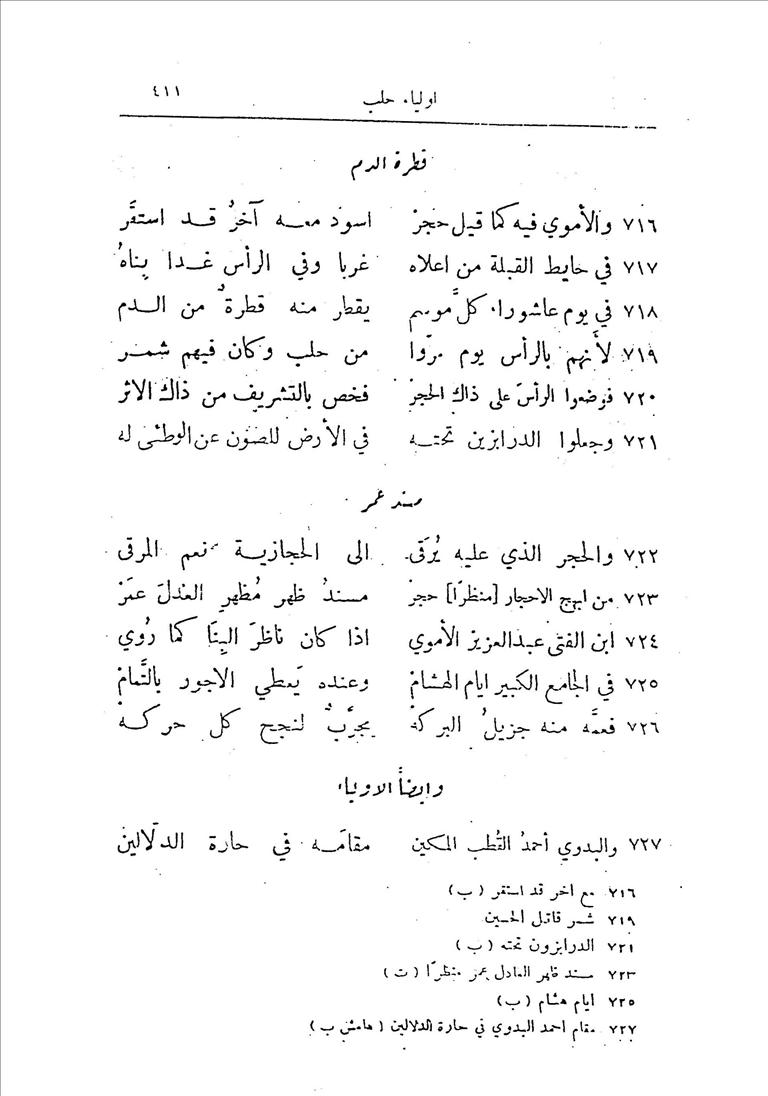 اولياء حلب ٤١١
قطرة الدم
٧١٦ والأموي فيه كما قيل حجرْ اسود معه آخرُ قد استقَّر
٧١٧ في حايط القبلة من اعلاه غربا وفي الرأس غدا بناهُ
٧١٨ في يوم عاشورا، كلَّ موسم يقطر منه قطرةٌ من الدم
٧١٩ لأنهم بالرأس يوم مرّوا من حلب وكان فيهم شمر
٧٢٠ فوضعوا الرأسَ على ذاك الحجرْ فخص بالتشريف من ذاك الاثر
٧٢١ وجعلوا الدرابزين تحته في الأرض للصَون عن الوطئى له
مسند عمر
٧٢٢ والحجر الذي عليه يُرَقى الى الحجازية نعم المرقى
٧٢٣ من ابهج الاحجار [منظرًا] حجرْ مسندُ ظهر مُظهرِ العدلَ عمَرْ
٧٢٤ ابن الفتى عبدالعزيز الأموي اذا كان ناظرَ البِنَا كما رُوي
٧٢٥ في الجامع الكبير ايام الهشامْ وعنده يَعطي الاجور بالتَّمامْ
٧٢٦ فعمَّه منه جزيلُ البركهْ مجرَّبٌ لنجح كل حركهْ
وايضاً الاولياء
٧٢٧ والبدوي أحمدُ القُطب المكين مقامَه في حارة الدلّالين
٧١٦ مع اخر قد استقر (ب)
٧١٩ شمر قاتل الحسين
٧٢١ الدرابزون تحته (ب)
٧٢٣ مسند ظهر العادل عمر منظرًا (ت)
٧٢٥ ايام هشام (ب)
٧٢٧ مقام احمد البدوي في حارة الدلالين (هامش ب)